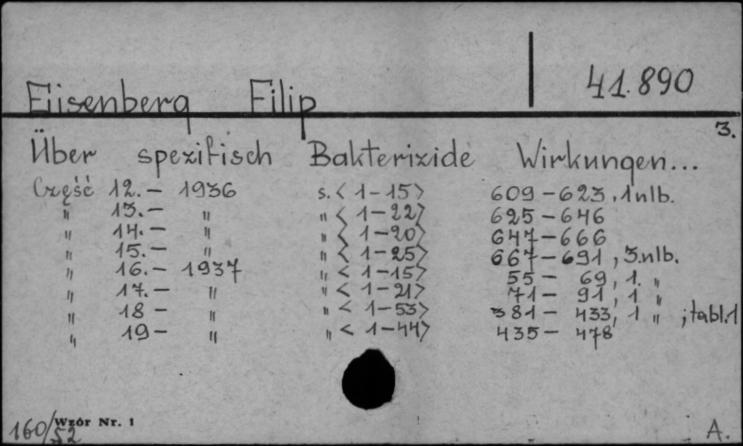 41.890
Eisenberg Filip
3.
Über spezifisch Bakterizide Wirkungen...
Część 12.- 1936 s.< 1-15> 609-623, 1nlb.
" 13.- " "< 1-22> 625-646
" 14.- " "< 1-20> 647-666
" 15.- " "< 1-25> 667-691, 3.nlb.
" 16.- 1937 "< 1-15> 55- 69, 1. "
" 17.- " "< 1-21> 71- 91, 1 "
" 18- " "< 1-53> 381- 433, 1 " ; tabl.1
" 19- " "< 1-44> 435- 478
160/52 Wzór Nr. 1 A.